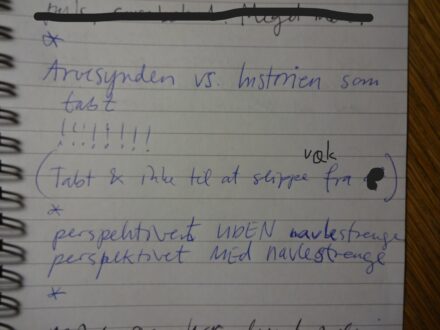 *
Arvesynden vs. historien som
tabt
!!!!!!!!
væk
(Tabt & ikke til at slippe fra)
*
perspektivet UDEN navlestrenge
perspektivet MED navlestrenge
*